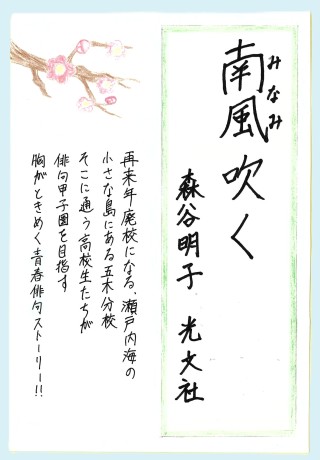 南風吹く
みなみ
森谷明子 光文社
再来年廃校になる、瀬戸内海の
小さな島にある五木分校
そこに通う高校生たちが
俳句甲子園を目指す
胸がときめく青春俳句ストーリー!!